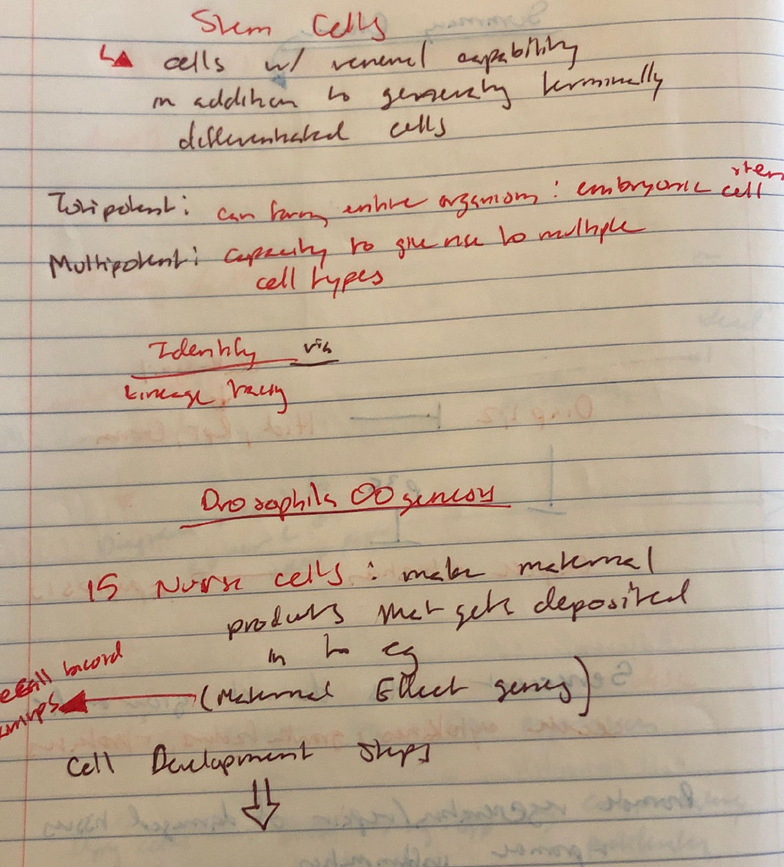 Stem Cells
↳ cells w/ renewal capability
in addition to generating terminally
differentiated cells
Totipotent: can form entire organism: embryonic stem cell
Multipotent: capacity to give rise to multiple
cell types
Identify via
Lineage tracing
Drosophila OOgenesis
15 Nurse cells: make maternal
products that gets deposited
in to eg
recall bicoid
(Maternal Effect genes)
Cell Development Steps